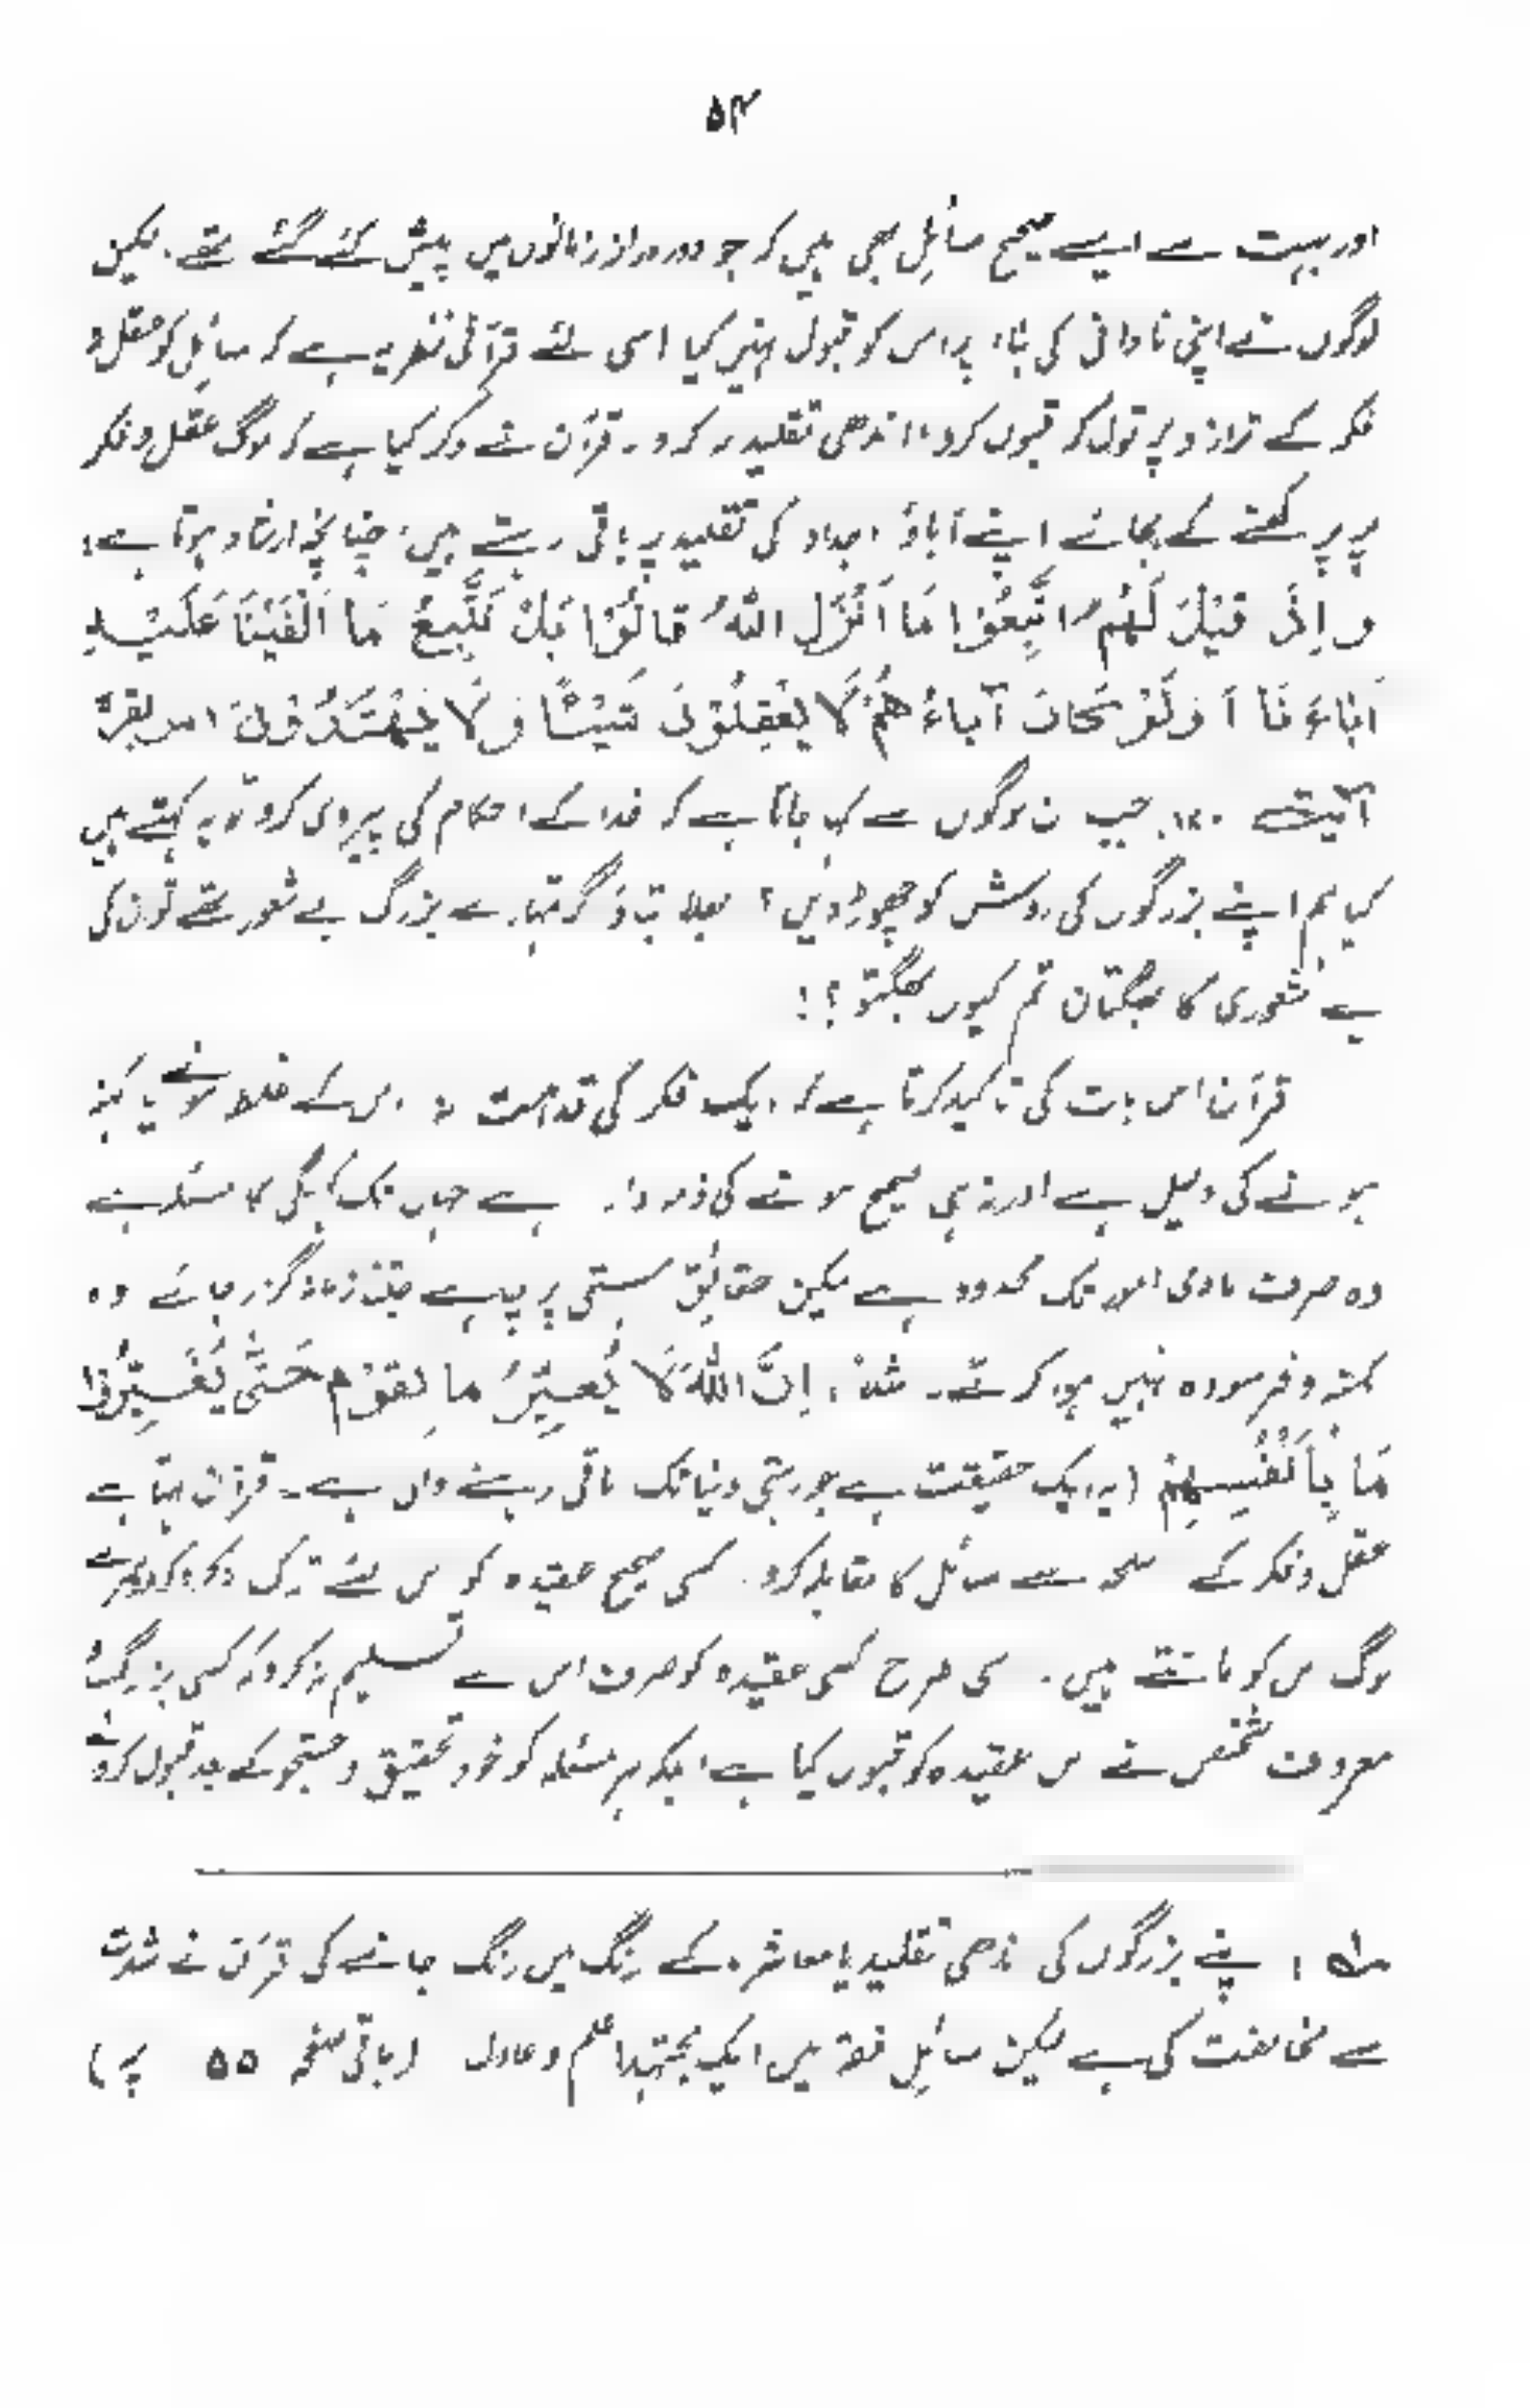 ۵۴
اور بہت سے ایسے صحیح مسائل بھی ہیں کہ جو دور دراز زمانوں میں پیش کئے گئے تھے۔ لیکن
لوگوں نے اپنی نادانی کی بناء پر اس کو قبول نہیں کیا اسی لئے قرآنی نظریہ ہے کہ مسائل کو عقل و
فکر کے ترازو پر تول کر قبول کرو، اندھی تقلید نہ کرو۔ قرآن نے ذکر کیا ہے کہ لوگ عقل و فکر
پر پرکھنے کے بجائے اپنے آباؤ اجداد کی تقلید پر باقی رہتے ہیں، چنانچہ ارشاد ہوتا ہے:
و اِذَا قِیْلَ لَھُمُ اتَّبِعُوْا مَا اَنْزَلَ اللّٰہُ قَالُوْا بَلْ نَتَّبِعُ مَا اَلْفَیْنَا عَلَیْہِ
اٰبَاءَنَا اَوَلَوْ کَانَ آبَاءُ ھُمْ لَا یَعْقِلُوْنَ شَیْئًا وَّلَا یَھْتَدُوْنَ (سورہ بقرہ
آیت ۱۷۰) جب ان لوگوں سے کہا جاتا ہے کہ خدا کے احکام کی پیروی کرو تو یہ کہتے ہیں
کیا ہم اپنے بزرگوں کی روش کو چھوڑ دیں؟ بھلا بتاؤ اگر تمہارے بزرگ بے شعور تھے تو ان کی
بے شعوری کا بھگتان تم کیوں بھگتو؟!
قرآن اس بات کی تاکید کرتا ہے کہ ایک فکر کی قدامت نہ اس کے غلط ہونے یا کہنہ
ہونے کی دلیل ہے اور نہ ہی صحیح ہونے کی ذمہ دار ہے جہاں تک کہنگی کا مسئلہ ہے
وہ صرف مادی امور تک محدود ہے لیکن حقائق ہستی پر چاہے جتنا زمانہ گزر جائے وہ
کہنہ و فرسودہ نہیں ہوا کرتے۔ مثلاً: اِنَّ اللّٰہَ لَا یُغَیِّرُ مَا بِقَوْمٍ حَتّٰی یُغَیِّرُوْا
مَا بِاَنْفُسِھِمْ (یہ ایک حقیقت ہے جو رہتی دنیا تک باقی رہنے والی ہے۔ قرآن کہتا ہے
عقل و فکر کے اسلحہ سے مسائل کا مقابلہ کرو۔ کسی صحیح عقیدہ کو اس لئے ترک نہ کرو کہ دوسرے
لوگ اس کو مانتے ہیں۔ اسی طرح کسی عقیدہ کو صرف اس لئے تسلیم نہ کرو کہ کسی بزرگ و
معروف شخص نے اس عقیدہ کو قبول کیا ہے، بلکہ ہر مسئلہ کو خود تحقیق و جستجو کے بعد قبول کرو
۱؎ اپنے بزرگوں کی اندھی تقلید یا معاشرہ کے رنگ میں رنگ جانے کی قرآن نے شدت
سے مخالفت کی ہے لیکن مسائل فقہ میں ایک مجتہد اعلم و عادل (باقی صفحہ ۵۵ پر)